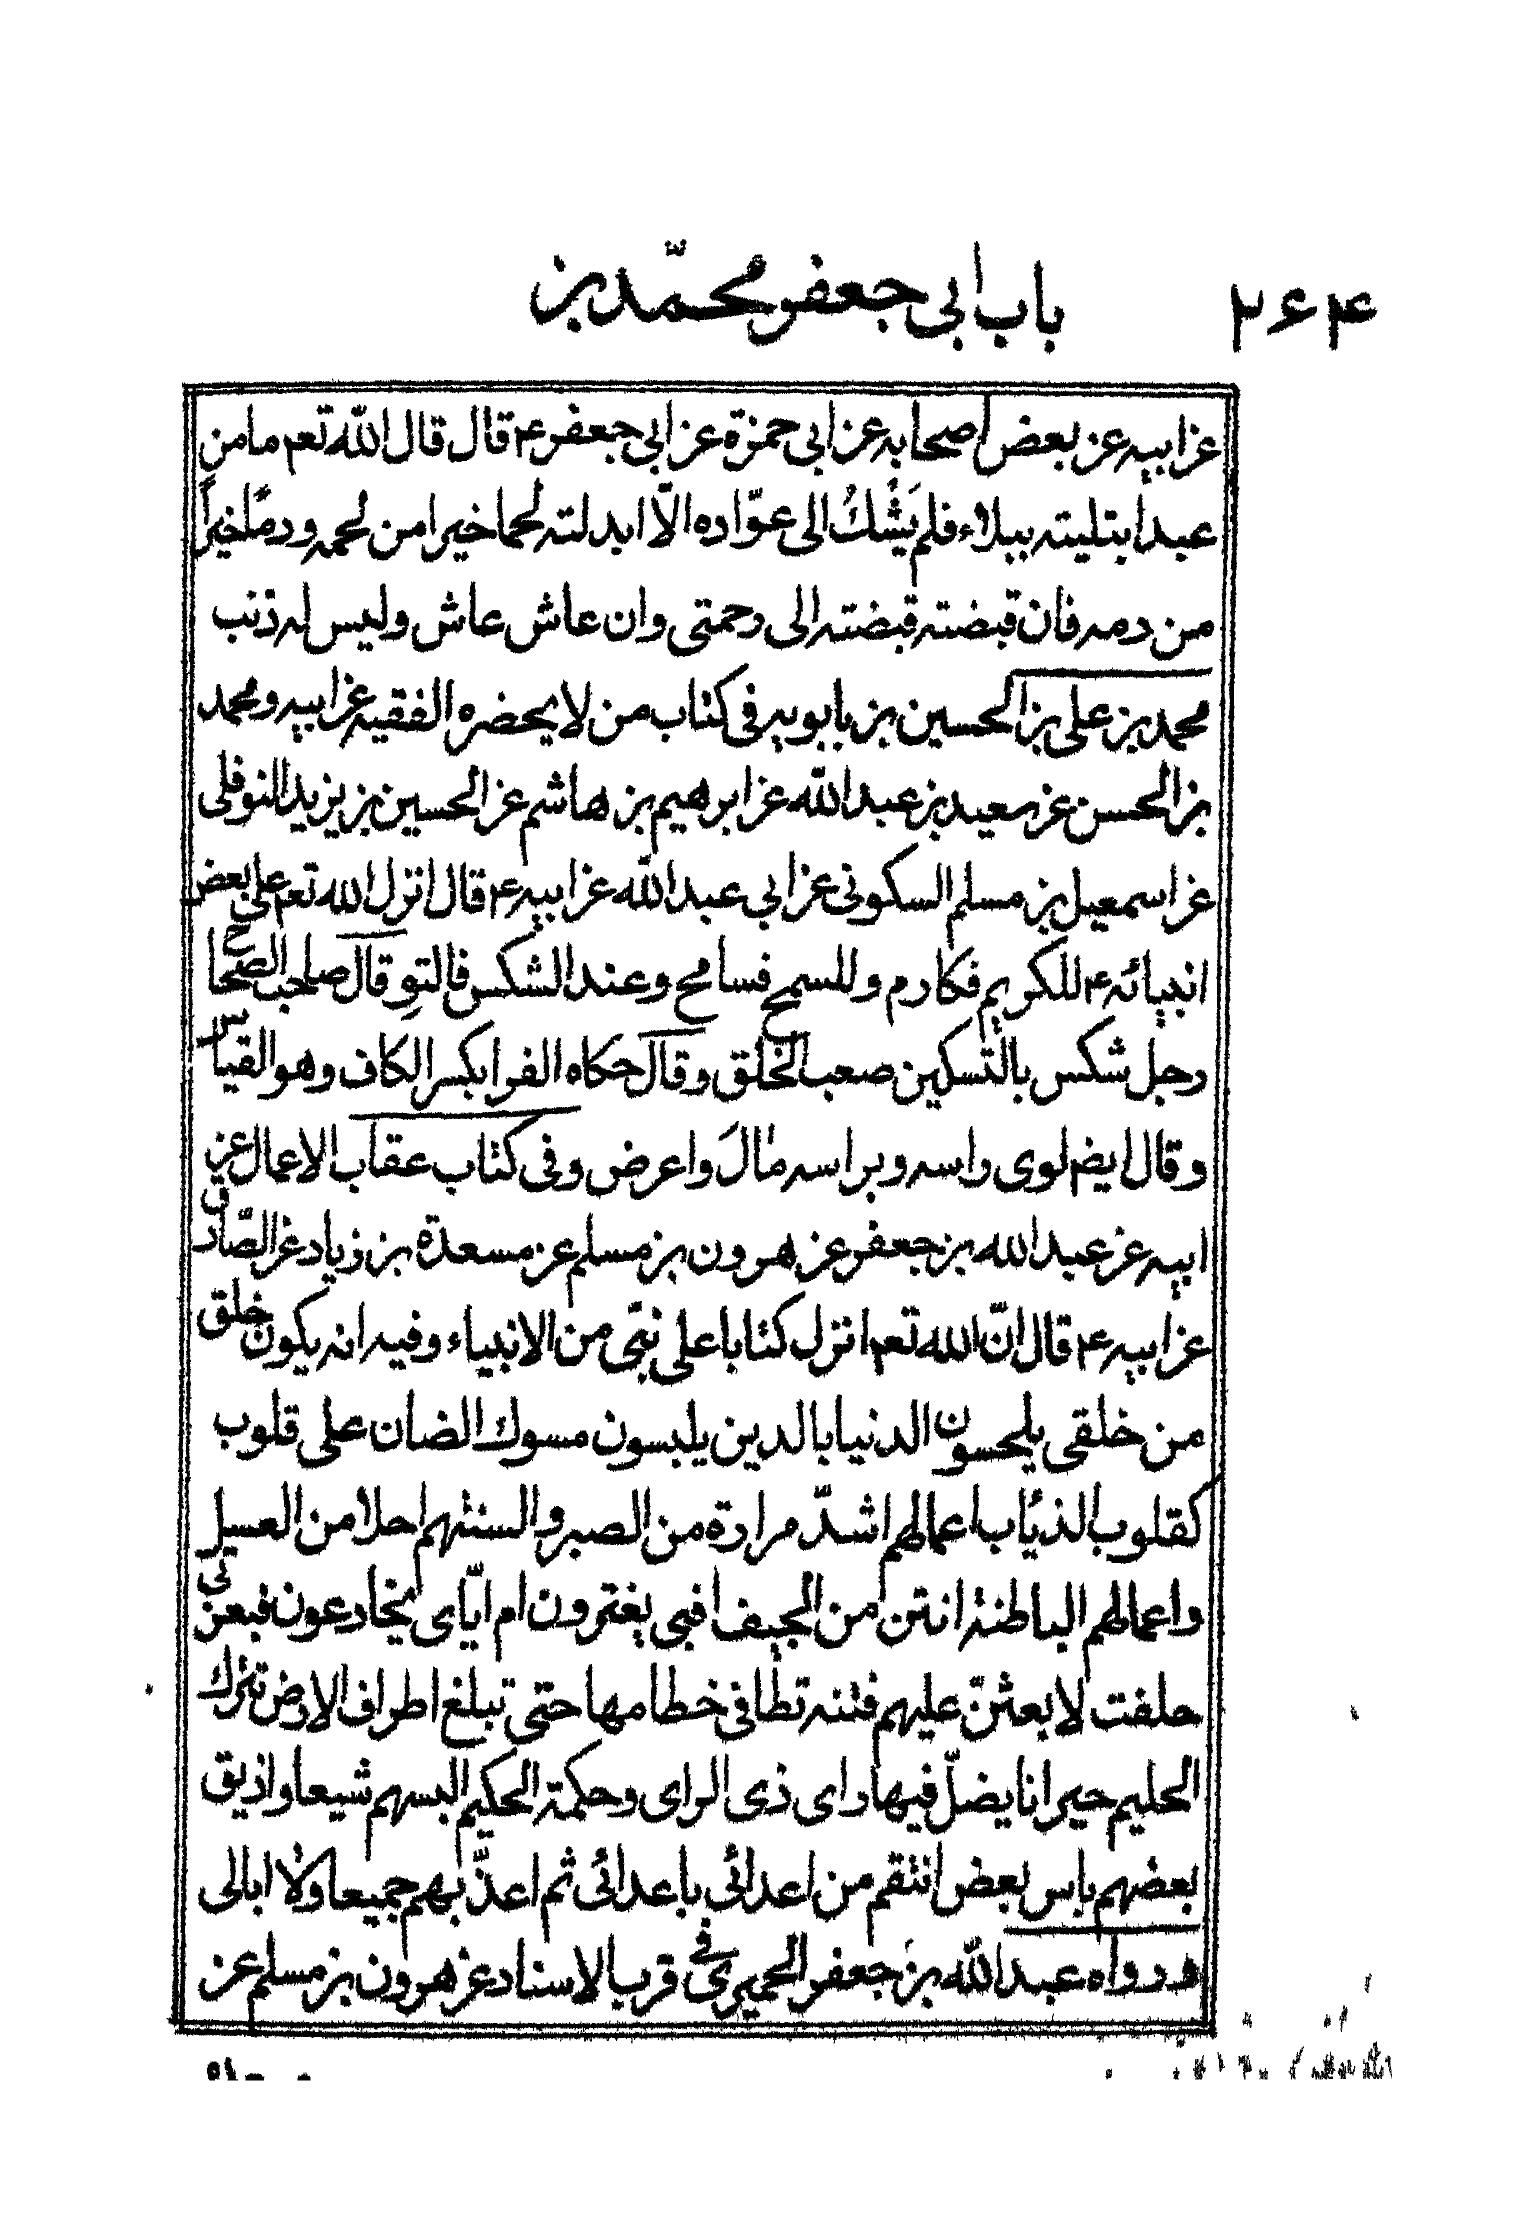 ۲۶۴
باب ابی جعفر محمّد بن
عن ابیه عن بعض اصحابه عن ابی حمزة عن ابی جعفر ع قال قال الله تعم ما من
عبد ابتلیته ببلاء فلم یَشْكُ الی عوّاده الّا ابدلته لحما خیرا من لحمه ودمًا خیراً
من دمه فان قبضته قبضته الی رحمتی وان عاش عاش ولیس له ذنب
محمد بن علی بن الحسین بن بابویه فی كتاب من لا یحضره الفقیه عن ابیه ومحمد
بن الحسن عن سعید بن عبد الله عن ابرهیم بن هاشم عن الحسین بن یزید النوفلی
عن اسمعیل بن مسلم السكونی عن ابی عبد الله عن ابیه ع قال انزل الله تعم علی بعض
انبیائه ع للكریم فكارم وللسمح فسامح وعند الشكس فالتوِ قال صاحب الصحاح
رجل شكس بالتسكین صعب الخلق وقال حكاه الفرا بكسر الكاف وهو القیاس
وقال ایضم لوی راسه وبراسه مٰالَ واعرض وفی كتاب عقاب الاعمال عن
ابیه عن عبد الله بن جعفر عن هرون بن مسلم عن مسعدة بن زیاد عن الصّادق
عن ابیه ع قال انّ الله تعم انزل كتابا علی نبّی من الانبیاء وفیه انه یكون خلق
من خلقی یلحسون الدنیا بالدین یلبسون مسوك الضان علی قلوب
كقلوب الذیٔاب اعمالهم اشدّ مرارة من الصبر والسنتهم احلا من العسل
واعمالهم الباطنة انتن من الجیف افبی یغترون ام ایّای یخادعون فبعزتی
حلفت لابعثنّ علیهم فتنه تطا فی خطامها حتی تبلغ اطراف الارض تترك
الحلیم حیرانا یضلّ فیها رای ذی الرای وحكمة الحكیم البسهم شیعا واذیق
بعضهم باس بعض انتقم من اعدائی باعدائی ثم اعذّبهم جمیعا ولا ابالی
ورواه عبد الله بن جعفر الحمیری فی قرب الاسناد عن هرون بن مسلم عن